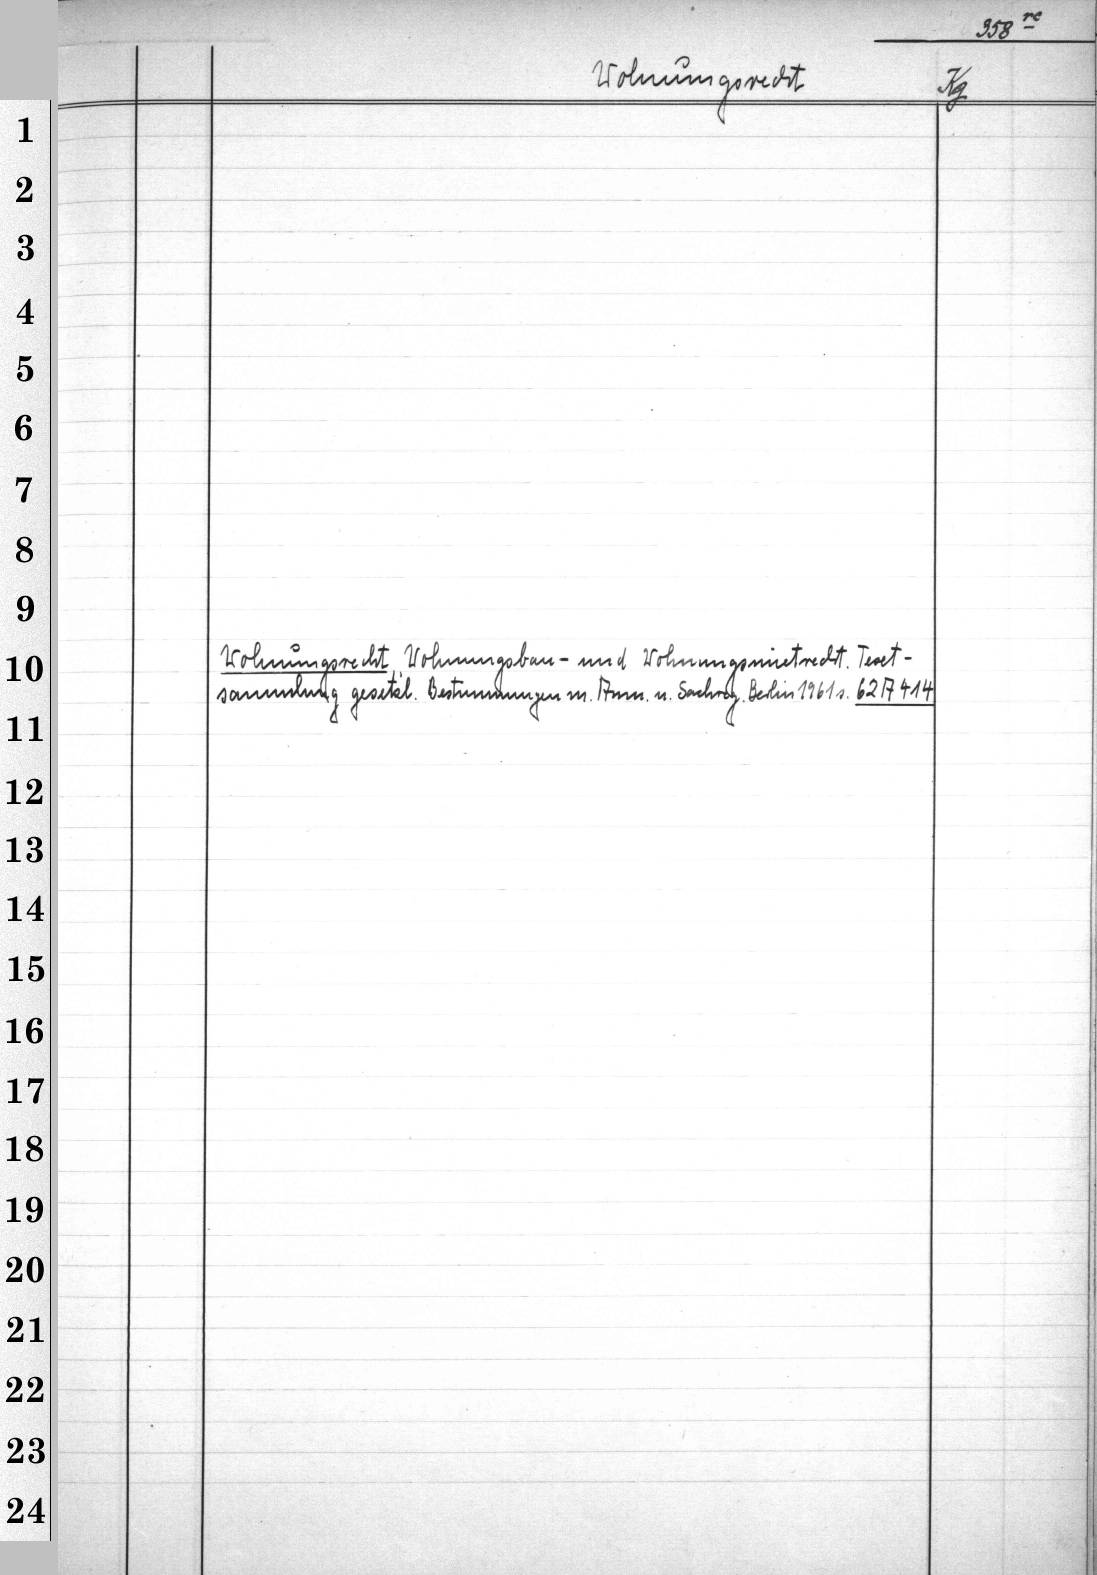 358 re
Wohnungsrecht Kg
1
2
3
4
5
6
7
8
9
10
Wohnungsrecht, Wohnungsbau- und Wohnungsmietrecht. Text-
sammlung gesetzl. Bestimmungen m. Anm. u. Sachreg. Berlin 1961 s. 62 A 414
11
12
13
14
15
16
17
18
19
20
21
22
23
24